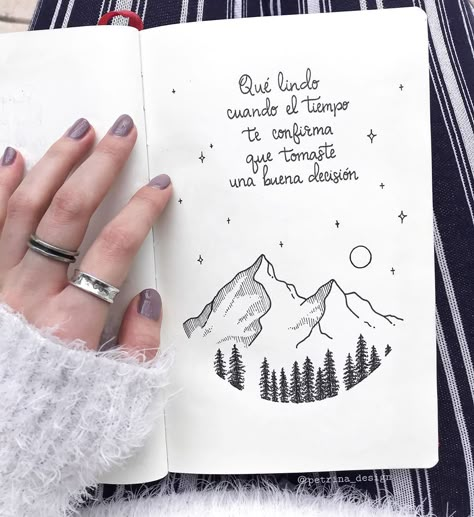 Qué lindo
cuando el tiempo
te confirma
que tomaste
una buena decisión
@petrina_design